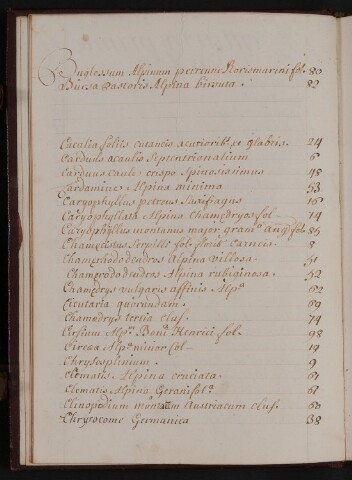 Buglossum Alpinum petreum Rorismarini fol. 80
Bursa Pastoris Alpina hirsuta. 82
Cacalia foliis cutaneis acutiorib. et glabris. 24
Carduus acaulis Septentrionalium 6
Carduus Caule crespo Spinosissimus 48
Cardamine Alpina minima 53
Caryophyllus petreus Saxifragus 16
Caryophyllata Alpina Chamedryos fol. 74
Caryophyllus montanus major gram. Ang. fol. 86
Chamecistus Serpilli fol. florib. Carneis 8
Chamerododendros Alpina villosa. 51
Chamerododendros Alpina rubiginosa 52
Chamedrys vulgaris affinis Alp.ª 62
Cicutaria quorundam. 69
Chamedrys tertia cluf. 74
Cirsium Alp. Boni Henrici fol. 98
Circea Alp.ª minor fol. 19
Chrysosplenium. 9
Clematis Alpina cruciata. 67
Clematis Alpina Geranifol.ª 67
Clinopodium montanum Austriacum cluf. 68
Chrysocome Germanica 38